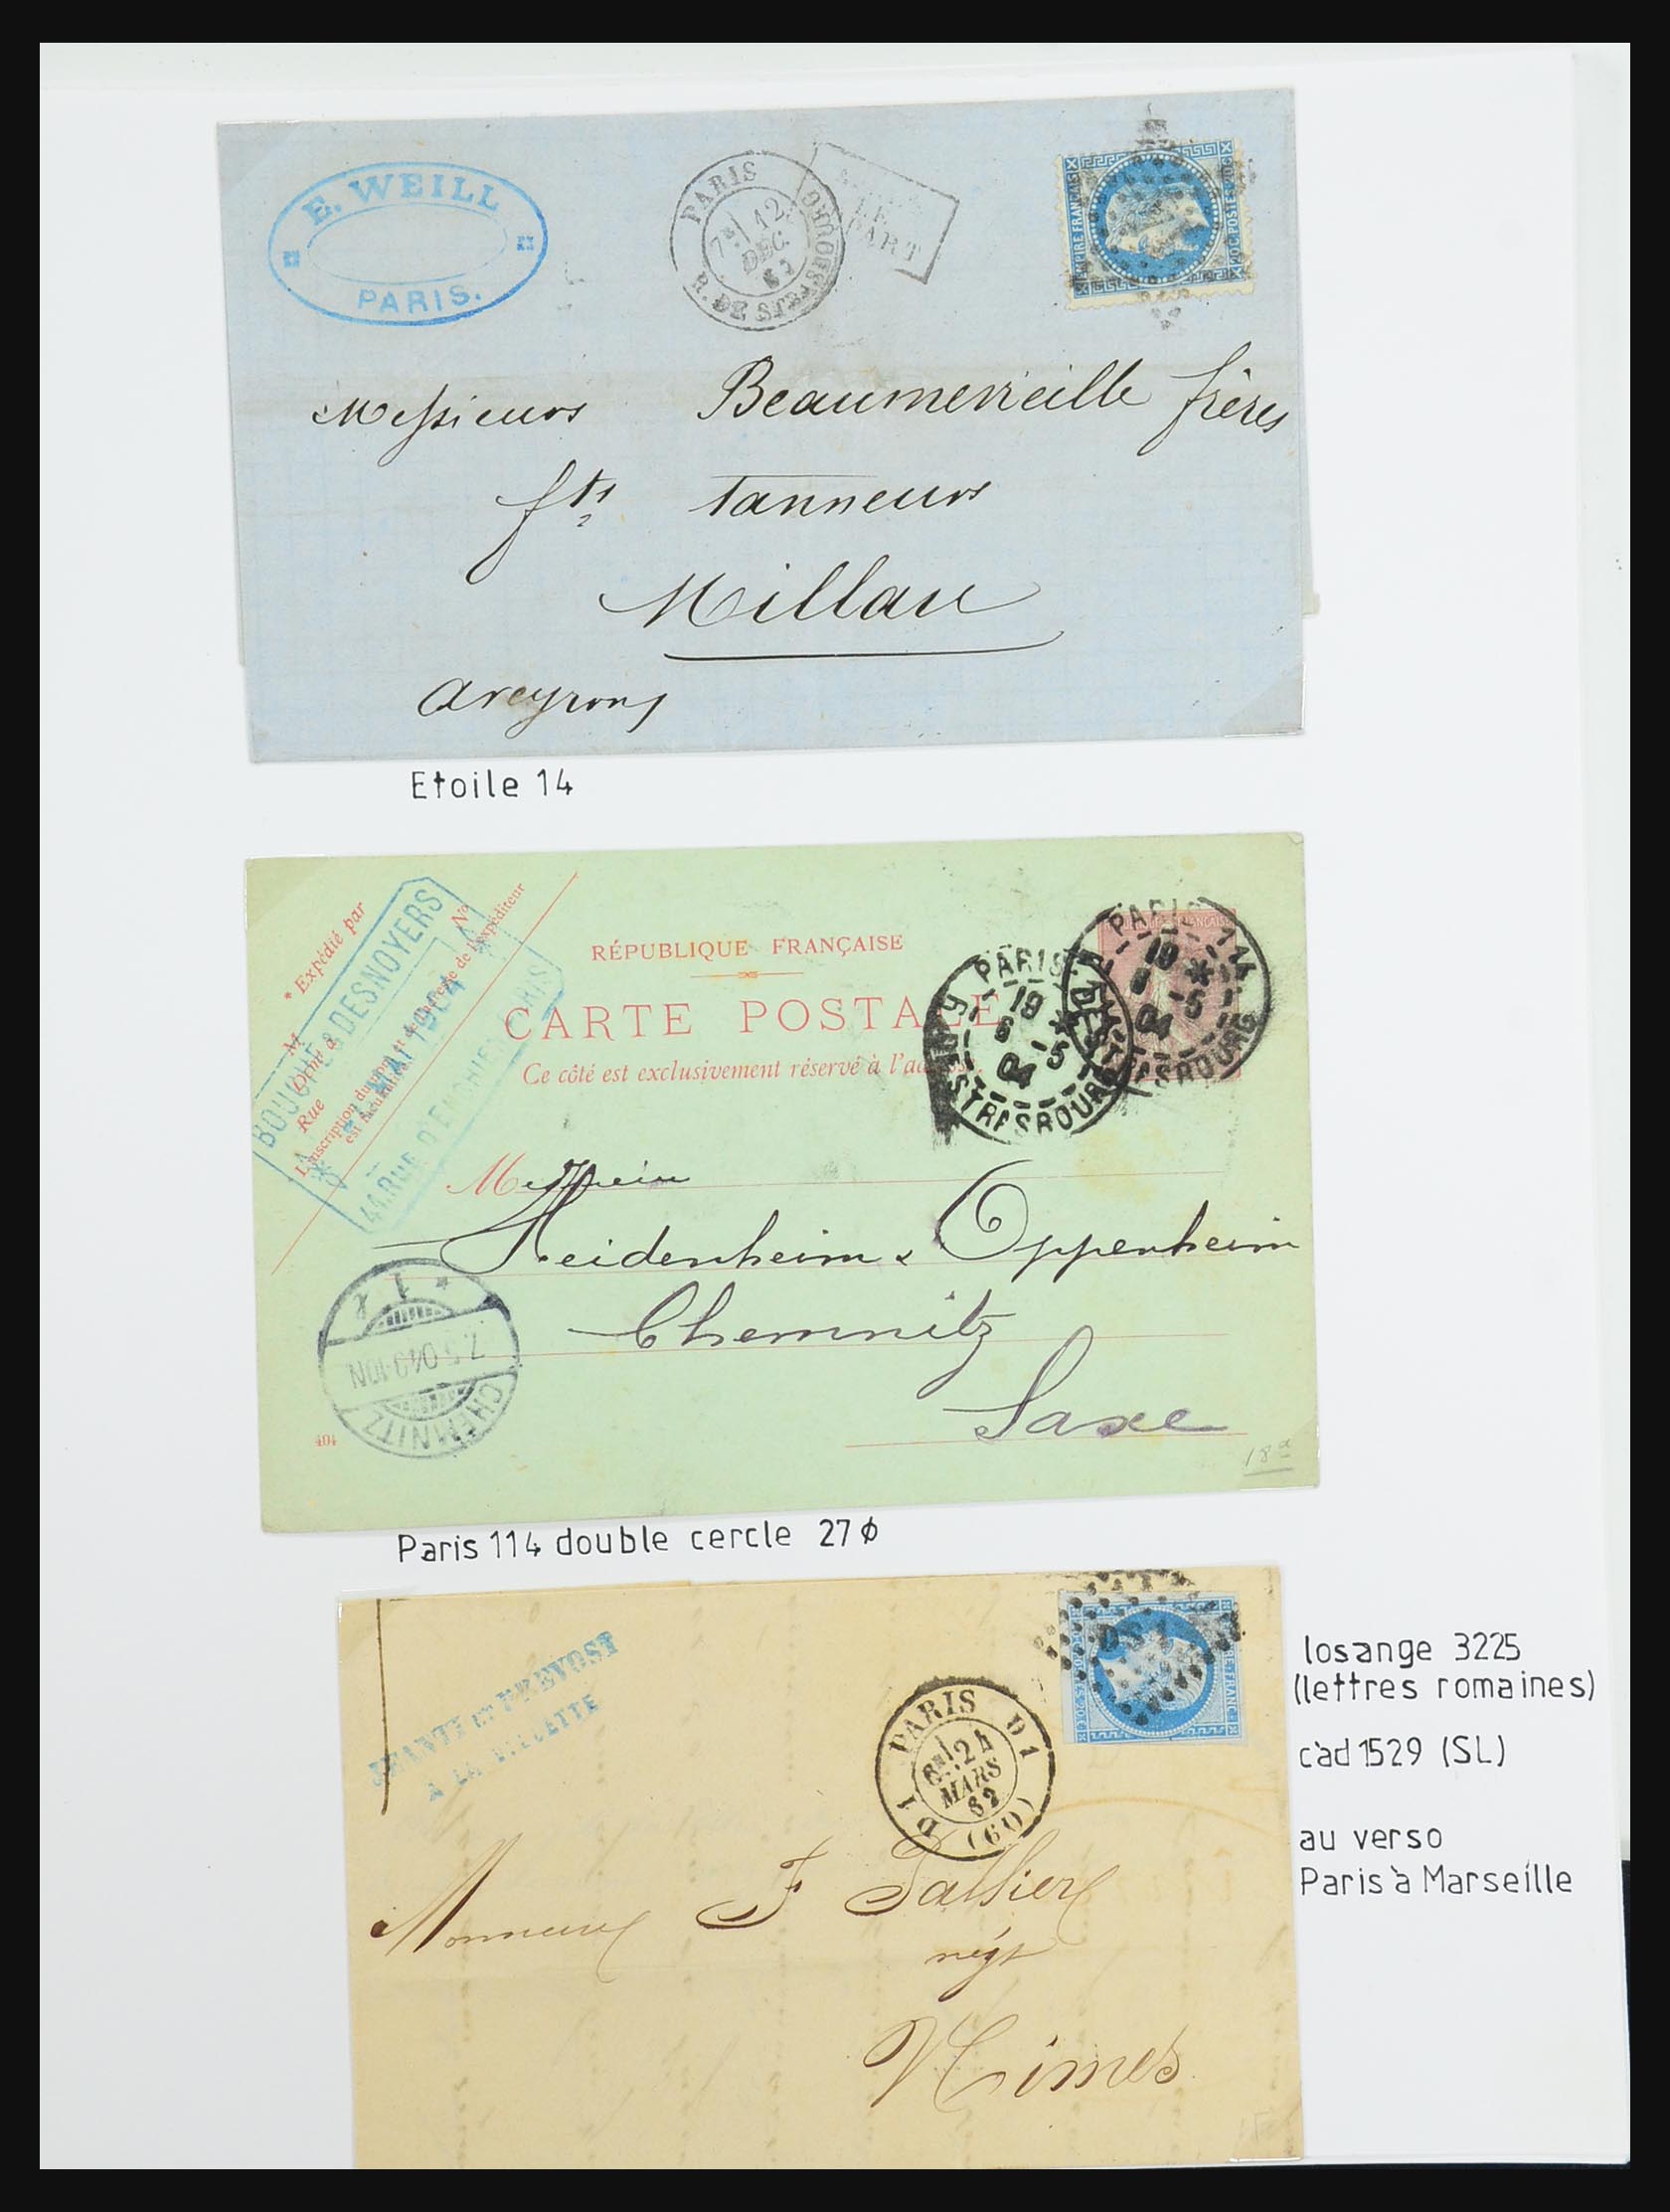 E. WEILL
PARIS.
PARIS
7E 12
DEC.
R. DE STRASBOURG
LE
PART
EMPIRE FRANCAIS
20C POSTES 20C
Messieurs Beaumevieille frères
fts Tanneurs
Millau
Aveyron
Etoile 14
* Expédié par
M
Dont à
Rue
No
L'inscription du nom et de l'adresse de l'expéditeur
est facultative.
BOUCHE & DESNOYERS
MAI 1904
41. RUE D'ENGHIEN PARIS
RÉPUBLIQUE FRANÇAISE
CARTE POSTALE
Ce côté est exclusivement réservé à l'adresse.
PARIS
19
6 -5
04
R. DE STRASBOURG
PARIS 114
19 *
6 -5
04
R. DE STRASBOURG
Messieu
Heidenheim & Oppenheim
Chemnitz
Saxe
CHEMNITZ
7.5.04.9-10N
* 1 r
404
18a
Paris 114 double cercle 27ϕ
ET PREVOST
A LA VILLETTE
DS1
PARIS D1
6E 24
MARS
62
D1 (60)
Monsieur F
négt
Nimes
losange 3225
(lettres romaines)
càd 1529 (SL)
au verso
Paris à Marseille